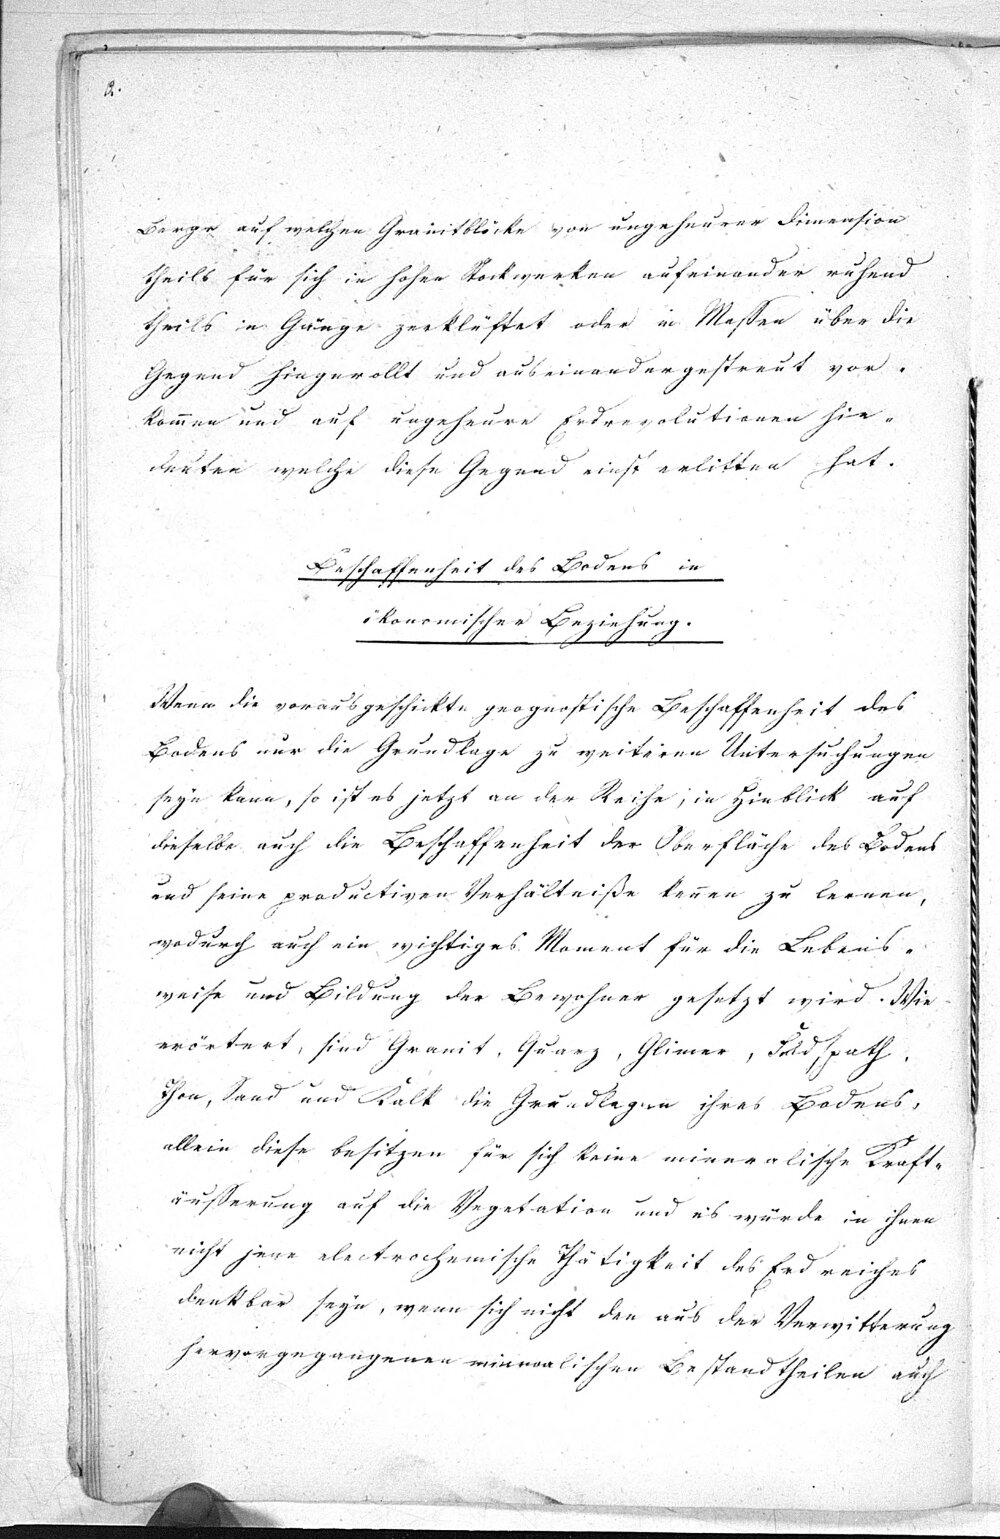 2.
Berge auf welchen Granitblöcke von ungeheurer Dimension
theils für sich in hohen Stockwerken aufeinander ruhend
theils in Gänge zerklüftet oder in Massen über die
Gegend hingerollt und auseinandergestreut vor-
kom̅en und auf ungeheure Erdrevolutionen hin-
deuten welche diese Gegend einst erlitten hat.
Beschaffenheit des Bodens in
ökonomischer Beziehung.
Wenn die vorausgeschickte geognostische Beschaffenheit des
Bodens nur die Grundlage zu weiteren Untersuchungen
seyn kann, so ist es jetzt an der Reihe, in Hinblick auf
dieselbe auch die Beschaffenheit der Oberfläche des Bodens
und seine productiven Verhältniße ken̅en zu lernen,
wodurch auch ein wichtiges Moment für die Lebens-
weise und Bildung der Bewohner gesetzt wird. Wie
erörtert, sind Granit, Quarz, Glimer, Feldspath,
Thon, Sand und Kalk die Grundlagen ihres Bodens,
allein diese besitzen für sich keine mineralische Kraft-
äusserung auf die Vegetation und es würde in ihnen
nicht jene electrochemische Thätigkeit des Erdreiches
denkbar seyn, wenn sich nicht den aus der Verwitterung
hervorgegangenen mineralischen Bestandtheilen auch